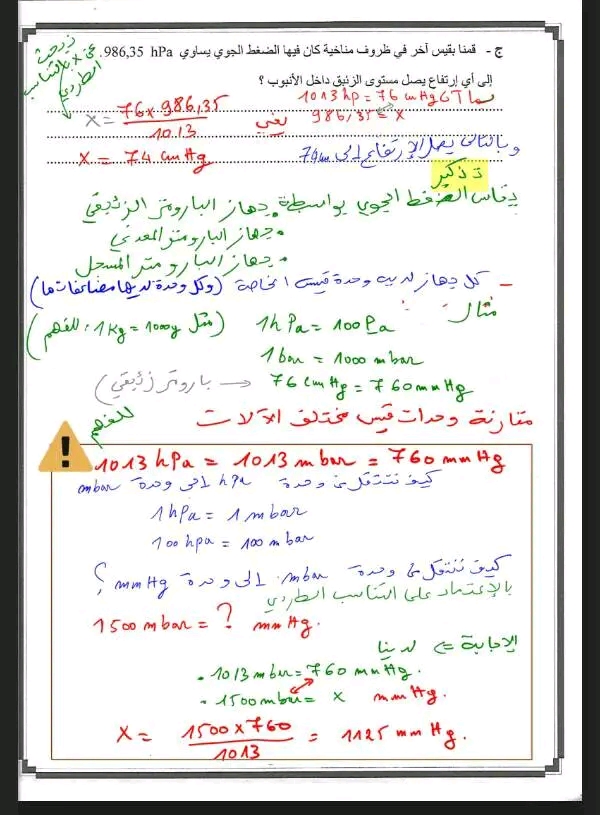 ج - قمنا بقيس آخر في ظروف مناخية كان فيها الضغط الجوي يساوي 986,35 hPa.
إلى أي إرتفاع يصل مستوى الزئبق داخل الأنبوب ؟
بما 1013 hp = 76 cm Hg
986,35 = x
يعني
x = 76 x 986,35 / 1013
x = 74 cm Hg
وبالتالي يصل الإرتفاع إلى 74
تذكير
يقاس الضغط الجوي بواسطة • جهاز البارومتر الزئبقي
• جهاز البارومتر المعدني
• جهاز البارومتر المسجل
- كل جهاز لديه وحدة قيس الخاصة (ولكل وحدة لديها مضاعفاتها)
مثال : 1 hPa = 100 Pa (مثل 1 Kg = 1000g : للفهم)
1 bar = 1000 mbar
76 cm Hg = 760 mm Hg → بارومتر زئبقي)
مقارنة وحدات قيس مختلف الآلات
للفهم
1013 hPa = 1013 mbar = 760 mm Hg
كيف ننتقل من وحدة hPa إلى وحدة mbar
1 hPa = 1 mbar
100 hpa = 100 mbar
كيف ننتقل من وحدة mbar إلى وحدة mm Hg ؟
بالإعتماد على التناسب الطردي
1500 mbar = ? mm Hg.
الإجابة ⇐ لدينا
• 1013 mbar = 760 mm Hg.
• 1500 mbar = x mm Hg.
X = 1500 x 760 / 1013 = 1125 mm Hg.